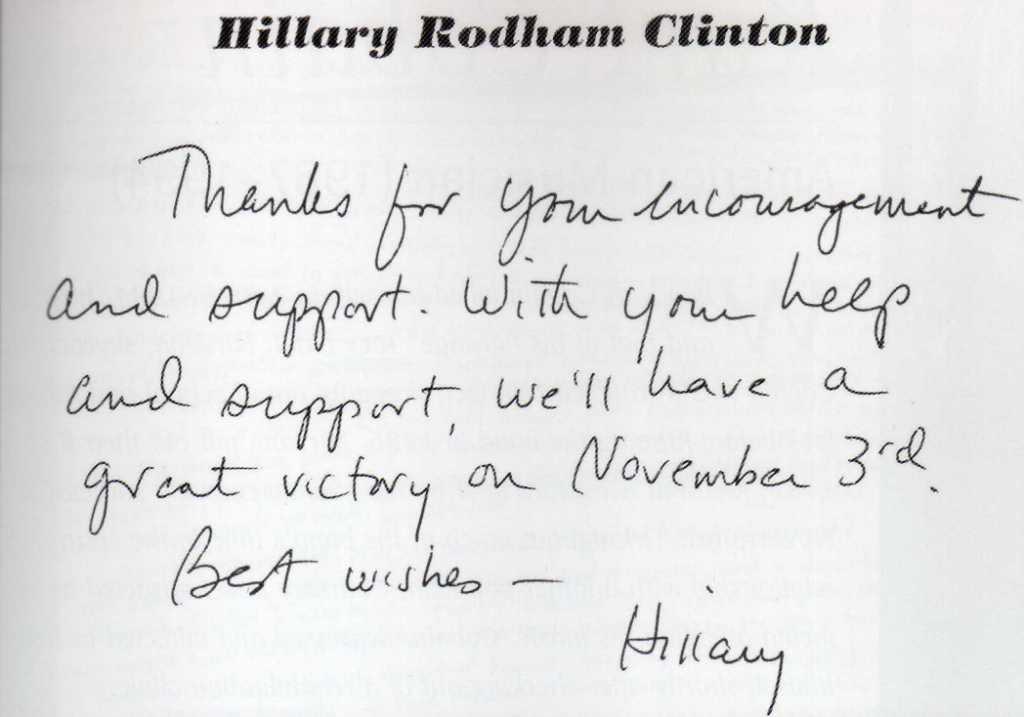 Hillary Rodham Clinton
Thanks for your encouragement
and support. With your help
and support we'll have a
great victory on November 3rd.
Best wishes—
Hillary